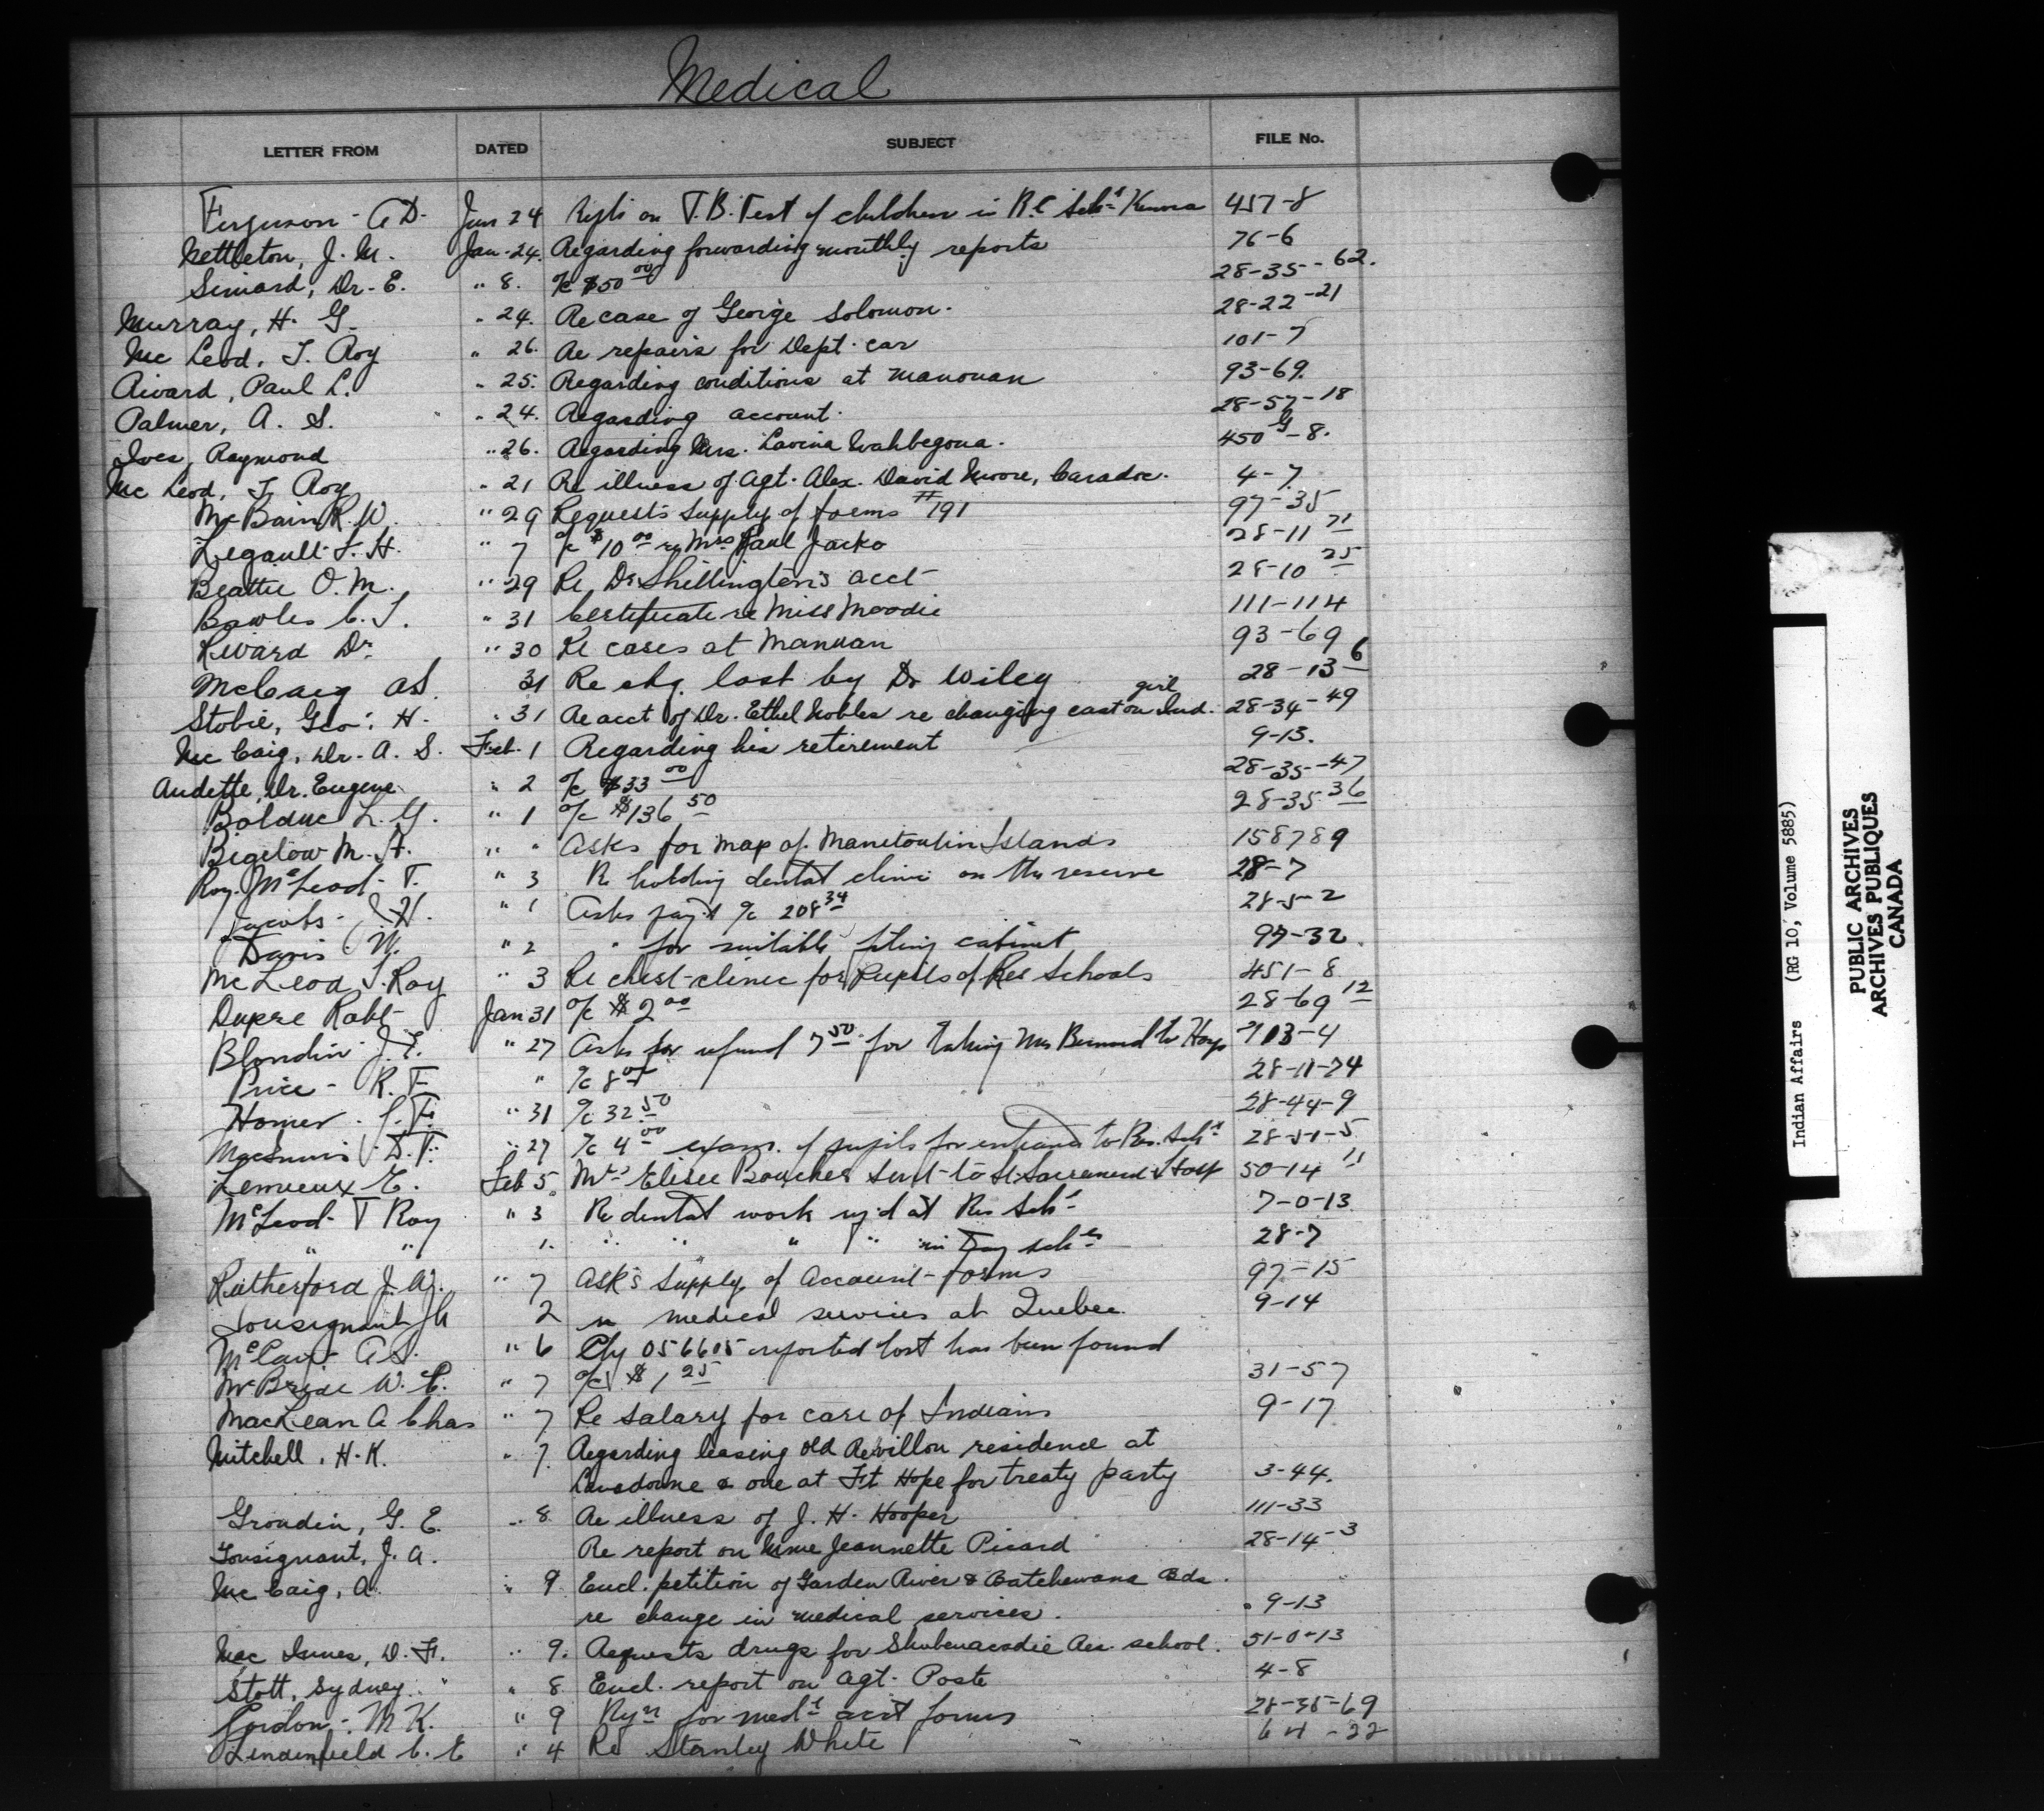 Medical
LETTER FROM DATED SUBJECT FILE No.
Ferguson - A D. Jan 24 on T.B. Test of children in R.C. Sch. Kenora 457-8
Nettleton, J. M. Jan. 24. Regarding forwarding monthly reports 76-6
Simard, Dr. E. " 8. a/c $50 00 28-35-62.
Murray, H. G. " 24. Re case of George Solomon. 28-22-21
Mc Leod, T. Roy " 26. Re repairs for Dept. car 101-7
Rivard, Paul L. " 25. Regarding conditions at Manouan 93-69.
Palmer, A. S. " 24. Regarding account. 28-57-18
Ives, Raymond " 26. Regarding Mrs. Lavina Wahbegona. 450 G-8.
Mc Leod, T. Roy " 21 Re illness of Agt. Alex. David Moore, Caradoc. 4-7
McBain R. W. " 29 Requests supply of forms #191 97-35
Legault J. H. " 7 a/c $10 00 re Mrs Paul Jacko 28-11 71
Beattie O. M. " 29 Re Dr Shillington's acct 28-10 25
Bowles C. T. " 31 Certificate re Miss Moodie 111-114
Rivard Dr. " 30 Re cases at Manuan 93-69
McCaig AS. 31 Re chq. lost by Dr Wiley 28-13 6
Stobie, Geo. H. " 31 Re acct of Dr. Ethel Nobles re changing cast on Ind. girl 28-34-49
Mc Caig, Dr. A. S. Feb. 1 Regarding his retirement 9-13.
Audette, Dr. Eugene " 2 a/c $33 00 28-35-47
Bolduc L. G. " 1 a/c $136 50 28-35 36
Bigelow M. A. " " Asks for map of Manitoulin Islands 158789
Roy McLeod - T. " 3 Re holding dental clinic on the reserve 28-7
Jacobs - J H. " 1 Asks pay't a/c 208 34 28-5-2
Davis W. " 2 " for suitable filing cabinet 97-32
McLeod T. Roy " 3 Re chest-clinic for Pupils of Res Schools 451-8
Dupre Robt Jan 31 a/c $2 00 28-69 12
Blondin J. E. " 27 Asks for refund 7 50 for taking Mrs Bernard to Hosp 713-4
Price - R. F. " a/c 8 00 28-11-74
Homer " 31 a/c 32 50 28-44-9
MacInnis D. F. " 27 a/c 4 00 exam. of pupils for entrance to Res. Schl 28-51-5
Lemieux E. Feb 5 Mrs Elisee Boucher sent to St Sacrement Hosp 50-14 11
McLeod T Roy " 3 Re dental work req'd at Res Schl 7-0-13
" " 1. " " " " in Day schls 28-7
Rutherford J. W. " 7 Asks supply of Account-forms 97-15
Tousignant JA 2 re medical services at Quebec 9-14
McCaig A S. " 6 Chq 056605 reported lost has been found
McBride W. C. " 7 a/c $1 25 31-57
MacLean A Chas " 7 Re salary for care of Indians 9-17
Mitchell, H. K. " 7. Regarding leasing old Revillon residence at
Lansdowne & one at Ft Hope for treaty party 3-44.
Grondin, G. E. " 8 Re illness of J. H. Hooper 111-33
Tousignant, J. A. Re report on Mme Jeannette Picard 28-14-3
Mc Caig, A. " 9 Encl. petition of Garden River & Batchewana Bds.
re change in medical services. 9-13
Mac Innes, D. F. " 9. Requests drugs for Shubenacadie Res. school. 51-0-13
Stott, Sydney " 8 Encl. report on Agt. Poste 4-8
Gordon - M K. " 9 Rqn for medl acct forms 28-35-69
Lindenfield C. E " 4 Re Stanley White 64-22
Indian Affairs (RG 10, Volume 5885)
PUBLIC ARCHIVES
ARCHIVES PUBLIQUES
CANADA